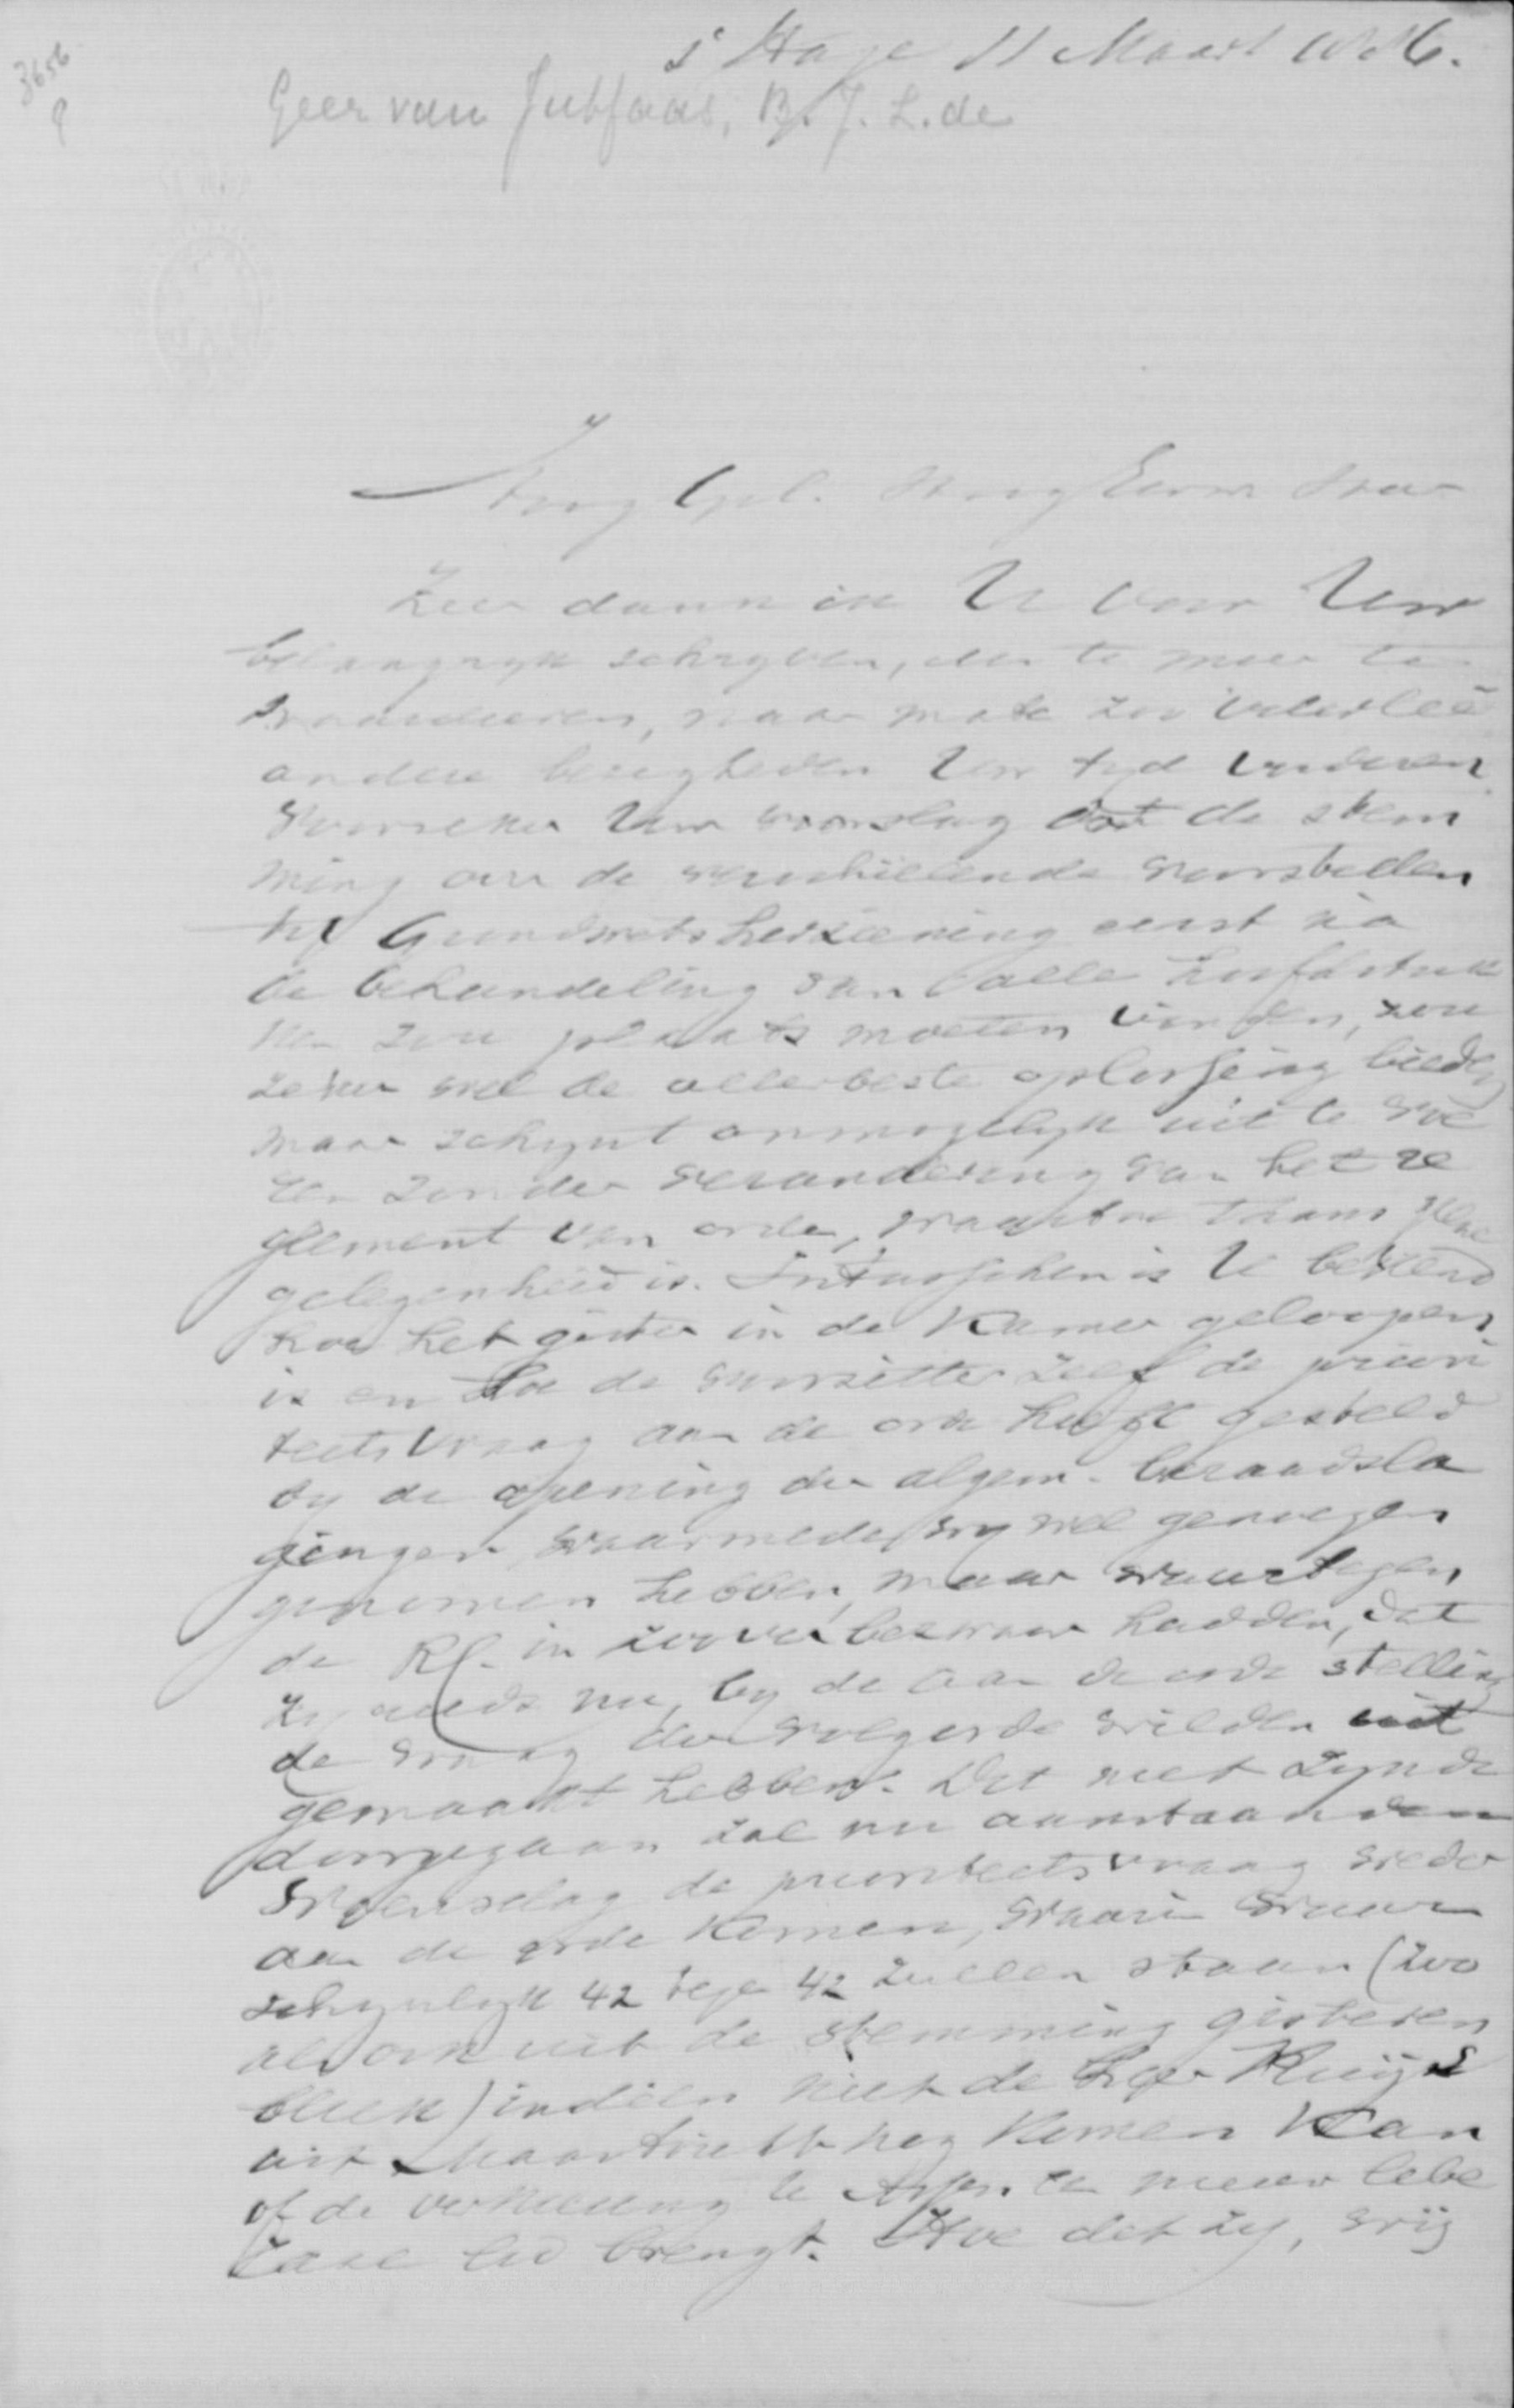 s' Hage 11 Maart 1886.
3656
Geer van Jutfaas, B. J. L. de
Hoog Gel. Hoog Eerw Heer
Zeer dank ik U voor Uw
belangryk schryven, des te meer te
waardeeren, naar mate zoo velerleë
andere bezigheden Uw tyd vorderen
Voorzeker Uw voorslag dat de stem
ming over de verschillende voorstellen
tot Grondwetsherziening eerst na
de behandeling van alle hoofdstuk
ken zou plaats moeten vinden, zou
zeker wel de allerbeste oplossing bieden
maar schynt onmogelyk uit te voe
ren zonder verandering van het re
glement van orde, waartoe thans geene
gelegenheid is. Intusschen is U bekend
hoe het gister in de Kamer geloopen
is en hoe de voorzitter zelf de priori
teits vraag aan de orde heeft gesteld
by de opening der algem. beraadsla
gingen, waarmede wy wel genoegen
genomen hebben, maar waartegen
de RC. in zoover bezwaar hadden, dat
zy reeds nu, by de aan de orde stelling
de vraag der volgorde wilden uit
gemaakt hebben. Dit niet zynde
doorgegaan zal nu aanstaanden
Woensdag de prioriteits vraag weder
aan de orde komen, waarin waar
schynlyk 42 tege 42 zullen staan (zoo
als ook uit de stemming gisteren
bleek) indien niet de heer Ruijs
uit Maastricht nog komen kan
of de verkiezing te Assen een nieuw libe
raal lid brengt. Hoe dat zy, wij